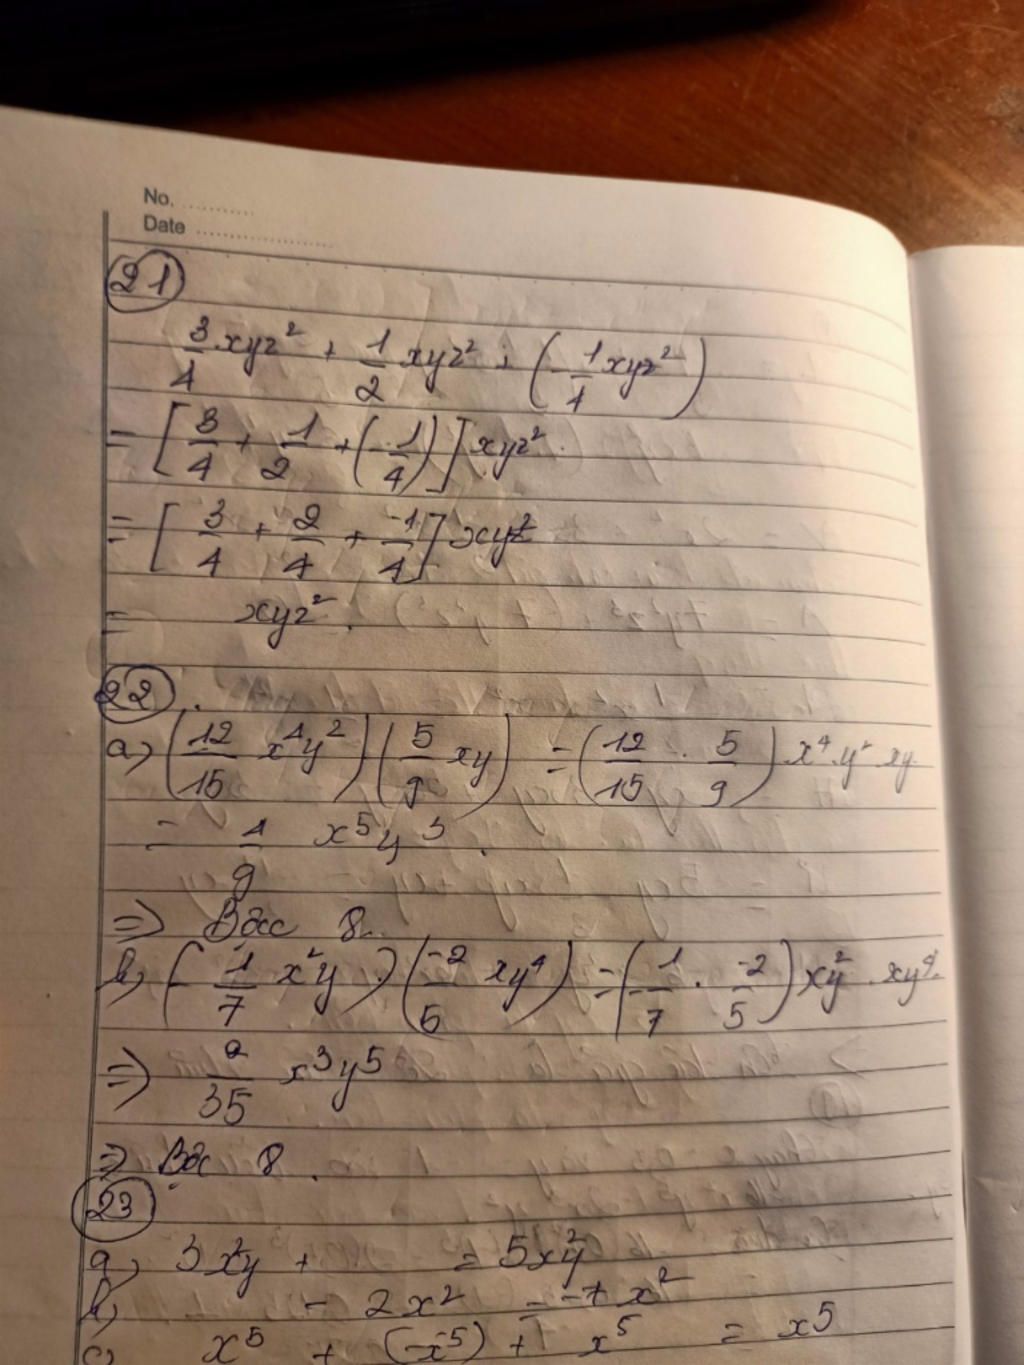 No. ...........
Date ......................
21
3/4 xyz² + 1/2 xyz² + (-1/4 xyz²)
= [3/4 + 1/2 + (-1/4)] xyz².
= [3/4 + 2/4 + -1/4] xyz²
= xyz².
22.
a) (12/15 x⁴y²) (5/9 xy) = (12/15 . 5/9) x⁴.y² xy.
= 4/9 x⁵y³.
=> Bậc 8.
b) (-1/7 x²y) (-2/5 xy⁴) = (-1/7 . -2/5) xy² . xy⁴.
=> 2/35 x³y⁵
=> Bậc 8.
23
a) 3x²y + = 5x²y
b) - 2x² = -7x²
c) x⁵ + (-x⁵) + x⁵ = x⁵